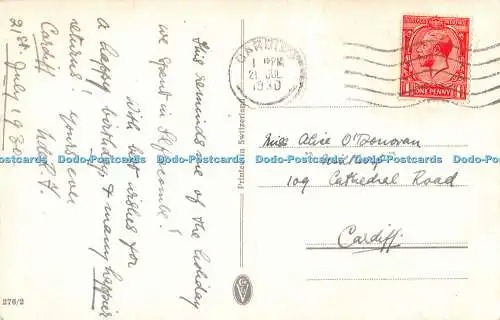 This reminds me of the holiday
we spent in Ilfracombe!
With best wishes for
a happy birthday & many happier
returns!
Yours ever
Cardiff
21st July 1930
Printed in Switzerland
276/2
CARDIFF
1 PM
21 JUL
1930
POSTAGE REVENUE
ONE PENNY
Miss Alice O'Donovan
109 Cathedral Road
Cardiff
Dodo-Postcards Dodo-Postcards Dodo-Postcards Dodo-Postcards